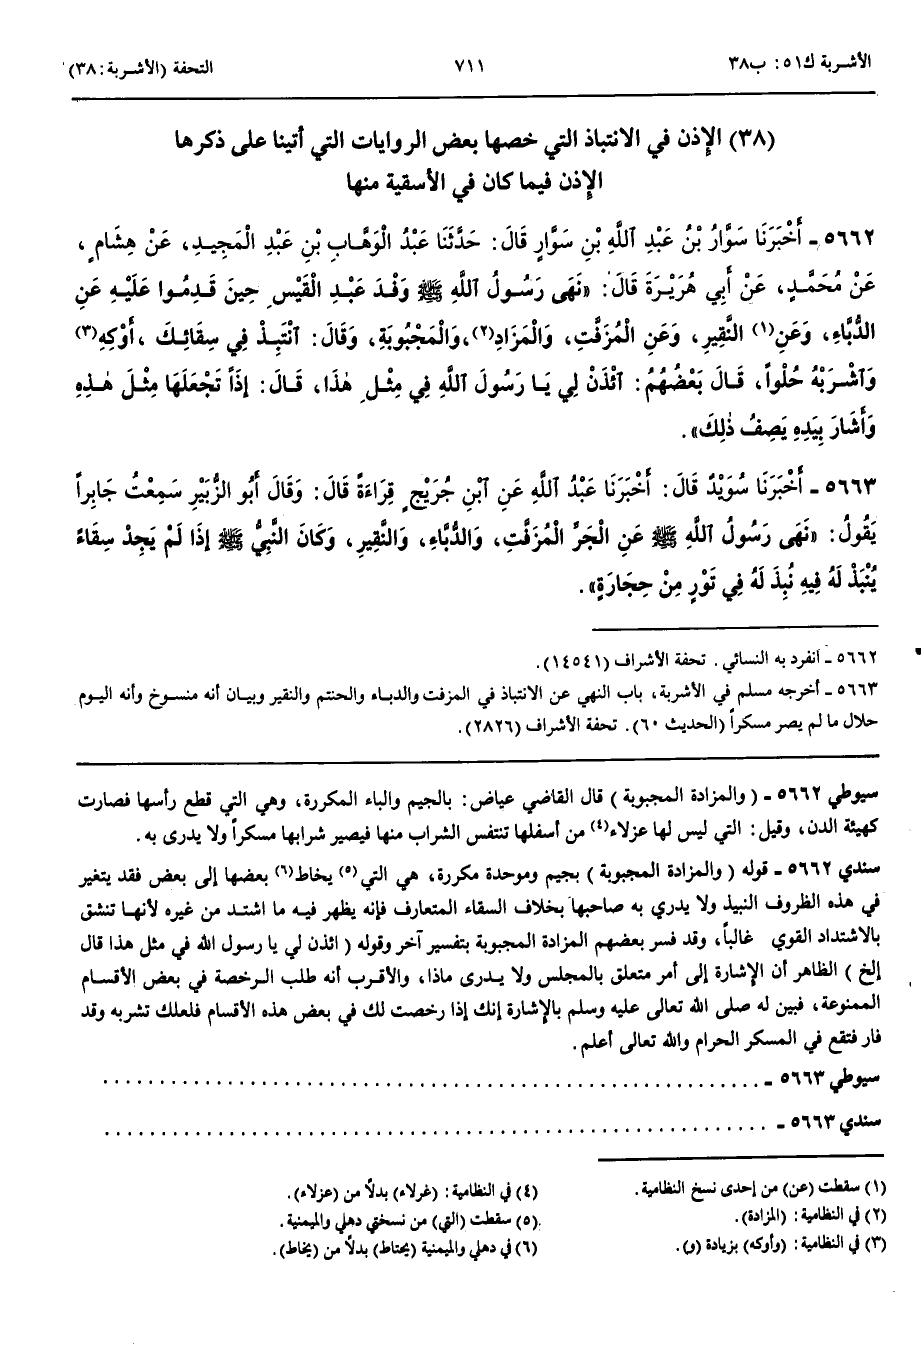 الأشربة ك٥١: ب٣٨ ٧١١ التحفة (الأشربة: ٣٨)
(٣٨) الإذن في الانتباذ التي خصها بعض الروايات التي أتينا على ذكرها
الإذن فيما كان في الأسقية منها
٥٦٦٢ - أَخْبَرَنَا سَوَّارُ بْنُ عَبْدِ اللَّهِ بْنِ سَوَّارٍ قَالَ: حَدَّثَنَا عَبْدُ الْوَهَّابِ بْنِ عَبْدِ الْمَجِيدِ، عَنْ هِشَامٍ،
عَنْ مُحَمَّدٍ، عَنْ أَبِي هُرَيْرَةَ قَالَ: «نَهَى رَسُولُ اللَّهِ ﷺ وَفْدَ عَبْدِ الْقَيْسِ حِينَ قَدِمُوا عَلَيْهِ عَنِ
الدُّبَّاءِ، وَعَنِ(١) النَّقِيرِ، وَعَنِ الْمُزَفَّتِ، وَالْمَزَادِ(٢)، وَالْمَجْبُوبَةِ، وَقَالَ: انْتَبِذْ فِي سِقَائِكَ، أَوْكِهِ(٣)
وَاشْرَبْهُ حُلْواً، قَالَ بَعْضُهُمُ: ائْذَنْ لِي يَا رَسُولَ اللَّهِ فِي مِثْلِ هٰذَا، قَالَ: إِذَاً تَجْعَلَهَا مِثْلَ هٰذِهِ
وَأَشَارَ بِيَدِهِ يَصِفُ ذٰلِكَ».
٥٦٦٣ - أَخْبَرَنَا سُوَيْدٌ قَالَ: أَخْبَرَنَا عَبْدُ اللَّهِ عَنِ ابْنِ جُرَيْجٍ قِرَاءَةً قَالَ: وَقَالَ أَبُو الزُّبَيْرِ سَمِعْتُ جَابِراً
يَقُولُ: «نَهَى رَسُولُ اللَّهِ ﷺ عَنِ الْجَرِّ الْمُزَفَّتِ، وَالدُّبَّاءِ، وَالنَّقِيرِ، وَكَانَ النَّبِيُّ ﷺ إِذَا لَمْ يَجِدْ سِقَاءً
يُنْبَذْ لَهُ فِيهِ نُبِذَ لَهُ فِي تَوْرٍ مِنْ حِجَارَةٍ».
٥٦٦٢ - انفرد به النسائي. تحفة الأشراف (١٤٥٤١).
٥٦٦٣ - أخرجه مسلم في الأشربة، باب النهي عن الانتباذ في المزفت والدباء والحنتم والنقير وبيان أنه منسوخ وأنه اليوم
حلال ما لم يصر مسكراً (الحديث ٦٠). تحفة الأشراف (٢٨٢٦).
سيوطي ٥٦٦٢ - (والمزادة المجبوبة) قال القاضي عياض: بالجيم والباء المكررة، وهي التي قطع رأسها فصارت
كهيئة الدن، وقيل: التي ليس لها عزلاء(٤) من أسفلها تنتفس الشراب منها فيصير شرابها مسكراً ولا يدرى به.
سندي ٥٦٦٢ - قوله (والمزادة المجبوبة) بجيم وموحدة مكررة، هي التي(٥) يخاط(٦) بعضها إلى بعض فقد يتغير
في هذه الظروف النبيذ ولا يدري به صاحبها بخلاف السقاء المتعارف فإنه يظهر فيه ما اشتد من غيره لأنها تنشق
بالاشتداد القوي غالباً، وقد فسر بعضهم المزادة المجبوبة بتفسير آخر وقوله (ائذن لي يا رسول الله في مثل هذا قال
إلخ) الظاهر أن الإشارة إلى أمر متعلق بالمجلس ولا يدرى ماذا، والأقرب أنه طلب الرخصة في بعض الأقسام
الممنوعة، فبين له صلى الله تعالى عليه وسلم بالإشارة إنك إذا رخصت لك في بعض هذه الأقسام فلعلك تشربه وقد
فار فتقع في المسكر الحرام والله تعالى أعلم.
سيوطي ٥٦٦٣ - ............................................................
سندي ٥٦٦٣ - ............................................................
(١) سقطت (عن) من إحدى نسخ النظامية.
(٢) في النظامية: (المزادة).
(٣) في النظامية: (وأوكه) بزيادة (و).
(٤) في النظامية: (غرلاء) بدلاً من (عزلاء).
(٥) سقطت (التي) من نسختي دهلي والميمنية.
(٦) في دهلي والميمنية (يحتاط) بدلاً من (يخاط).